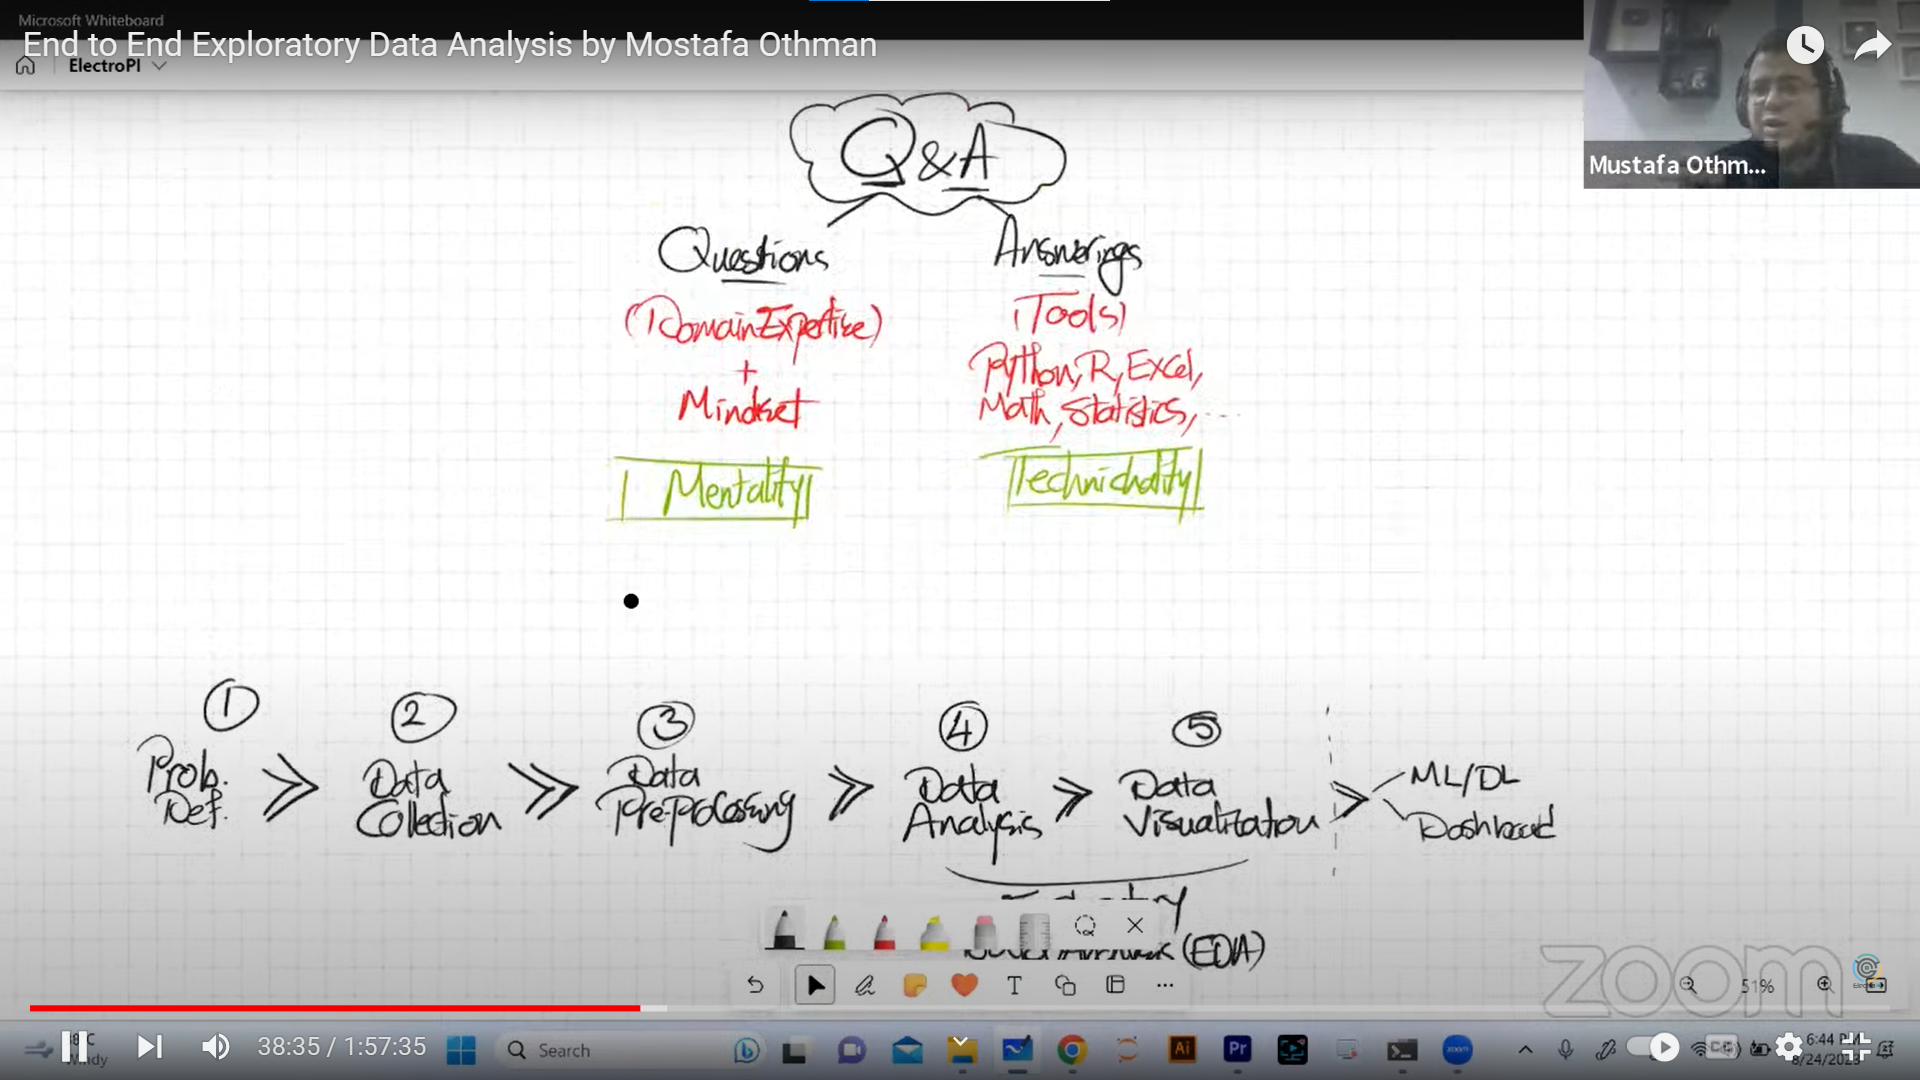 Microsoft Whiteboard
End to End Exploratory Data Analysis by Mostafa Othman
ElectroPI
Mustafa Othm...
Q & A
Questions
Answerings
(Domain Expertise)
+
Mindset
(Tools)
Python, R, Excel,
Math, Statistics, ...
Mentality
Technichality
1
2
3
4
5
Prob.
Def.
Data
Collection
Data
Pre-processing
Data
Analysis
Data
Visualization
ML/DL
Dashboard
(EDA)
zoom
51%
38:35 / 1:57:35
Search
Ai
Pr
zoom
6:44 PM
8/24/2023